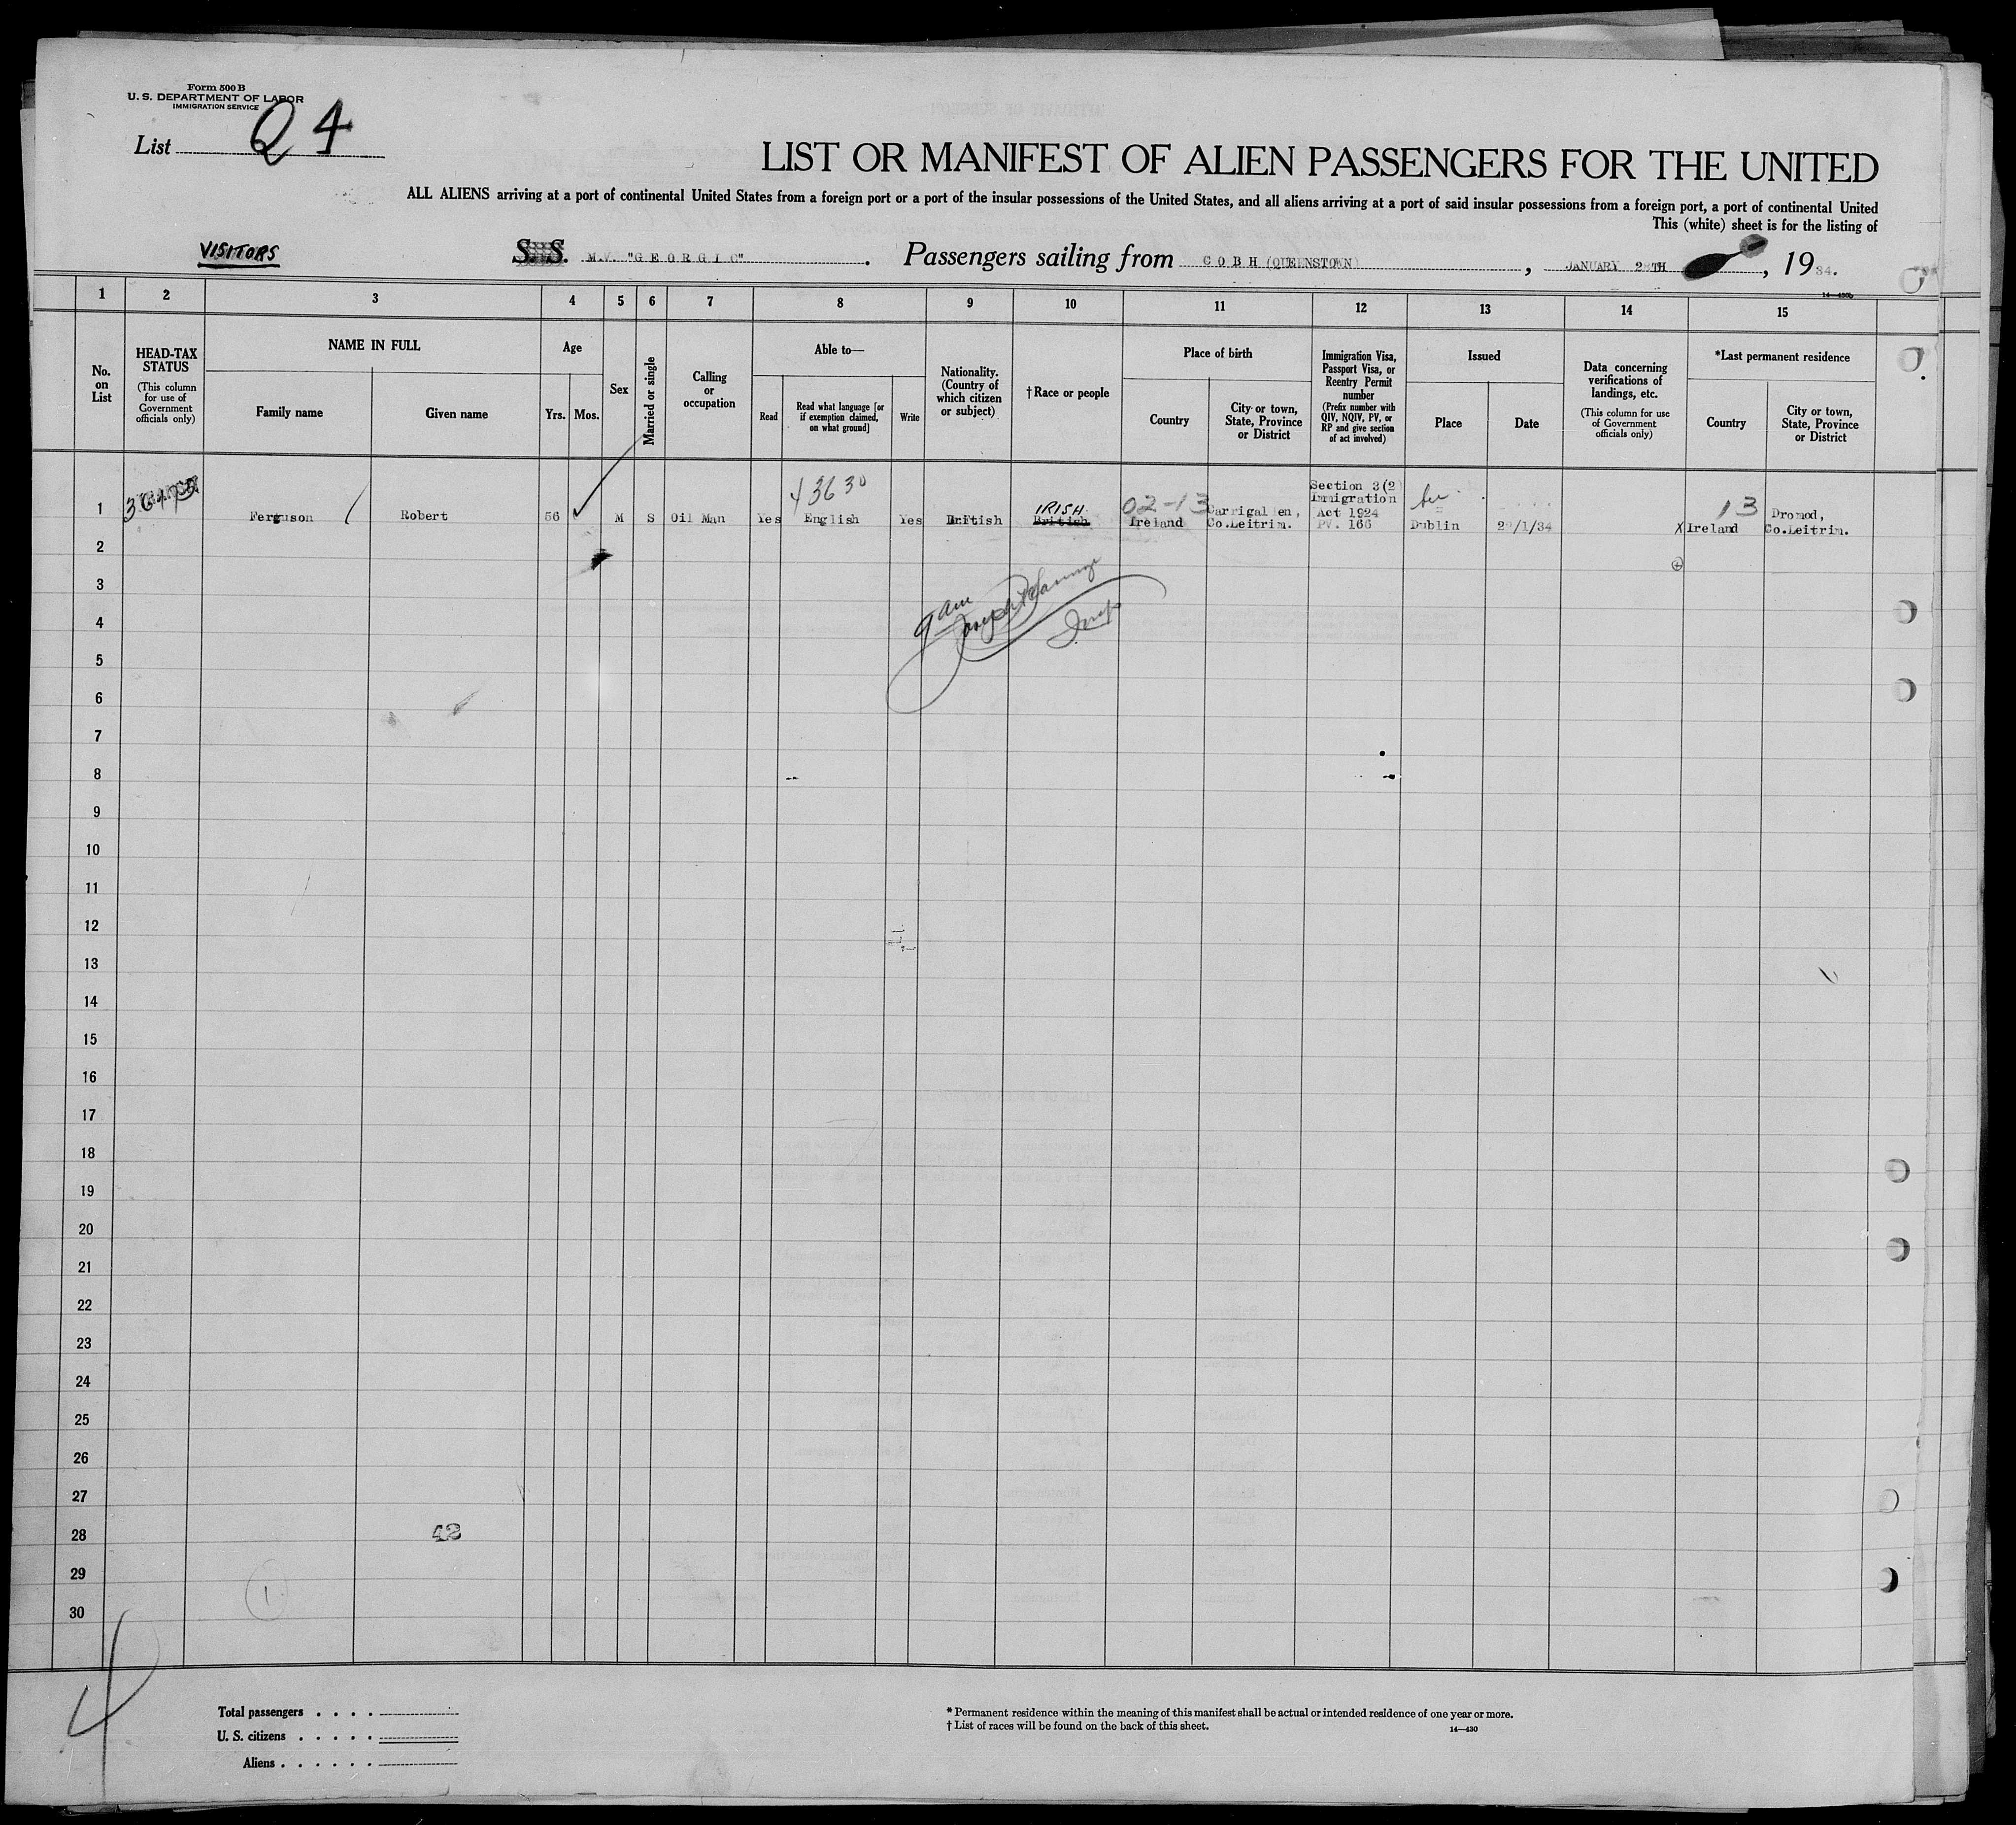 Form 500 B
U. S. DEPARTMENT OF LABOR
IMMIGRATION SERVICE
List 24
LIST OR MANIFEST OF ALIEN PASSENGERS FOR THE UNITED
ALL ALIENS arriving at a port of continental United States from a foreign port or a port of the insular possessions of the United States, and all aliens arriving at a port of said insular possessions from a foreign port, a port of continental United
This (white) sheet is for the listing of
VISITORS
S. S. M.V. "GEORGIC". Passengers sailing from COBH (QUEENSTOWN), JANUARY 28TH, 1934.
14—430b
1 2 3 4 5 6 7 8 9 10 11 12 13 14 15
No. on List
HEAD-TAX STATUS
(This column for use of Government officials only)
NAME IN FULL
Family name
Given name
Age
Yrs. Mos.
Sex
Married or single
Calling or occupation
Able to—
Read
Read what language [or if exemption claimed, on what ground]
Write
Nationality. (Country of which citizen or subject)
†Race or people
Place of birth
Country
City or town, State, Province or District
Immigration Visa, Passport Visa, or Reentry Permit number
(Prefix number with QIV, NQIV, PV, or RP and give section of act involved)
Issued
Place
Date
Data concerning verifications of landings, etc.
(This column for use of Government officials only)
*Last permanent residence
Country
City or town, State, Province or District
43630
IRISH
02-13
Section 3(2)
Immigration
Act 1924
13
1 Ferguson Robert 56 M S Oil Man Yes English Yes British British Ireland Carrigallen, Co.Leitrim. PV. 166 Dublin 22/1/34 X Ireland Dromod, Co.Leitrim.
2
3
4
5
6
7
8
9
10
11
12
13
14
15
16
17
18
19
20
21
22
23
24
25
26
27
28
42
29
1
30
Total passengers . . . .
U. S. citizens . . . . .
Aliens . . . . . .
* Permanent residence within the meaning of this manifest shall be actual or intended residence of one year or more.
† List of races will be found on the back of this sheet.
14—430